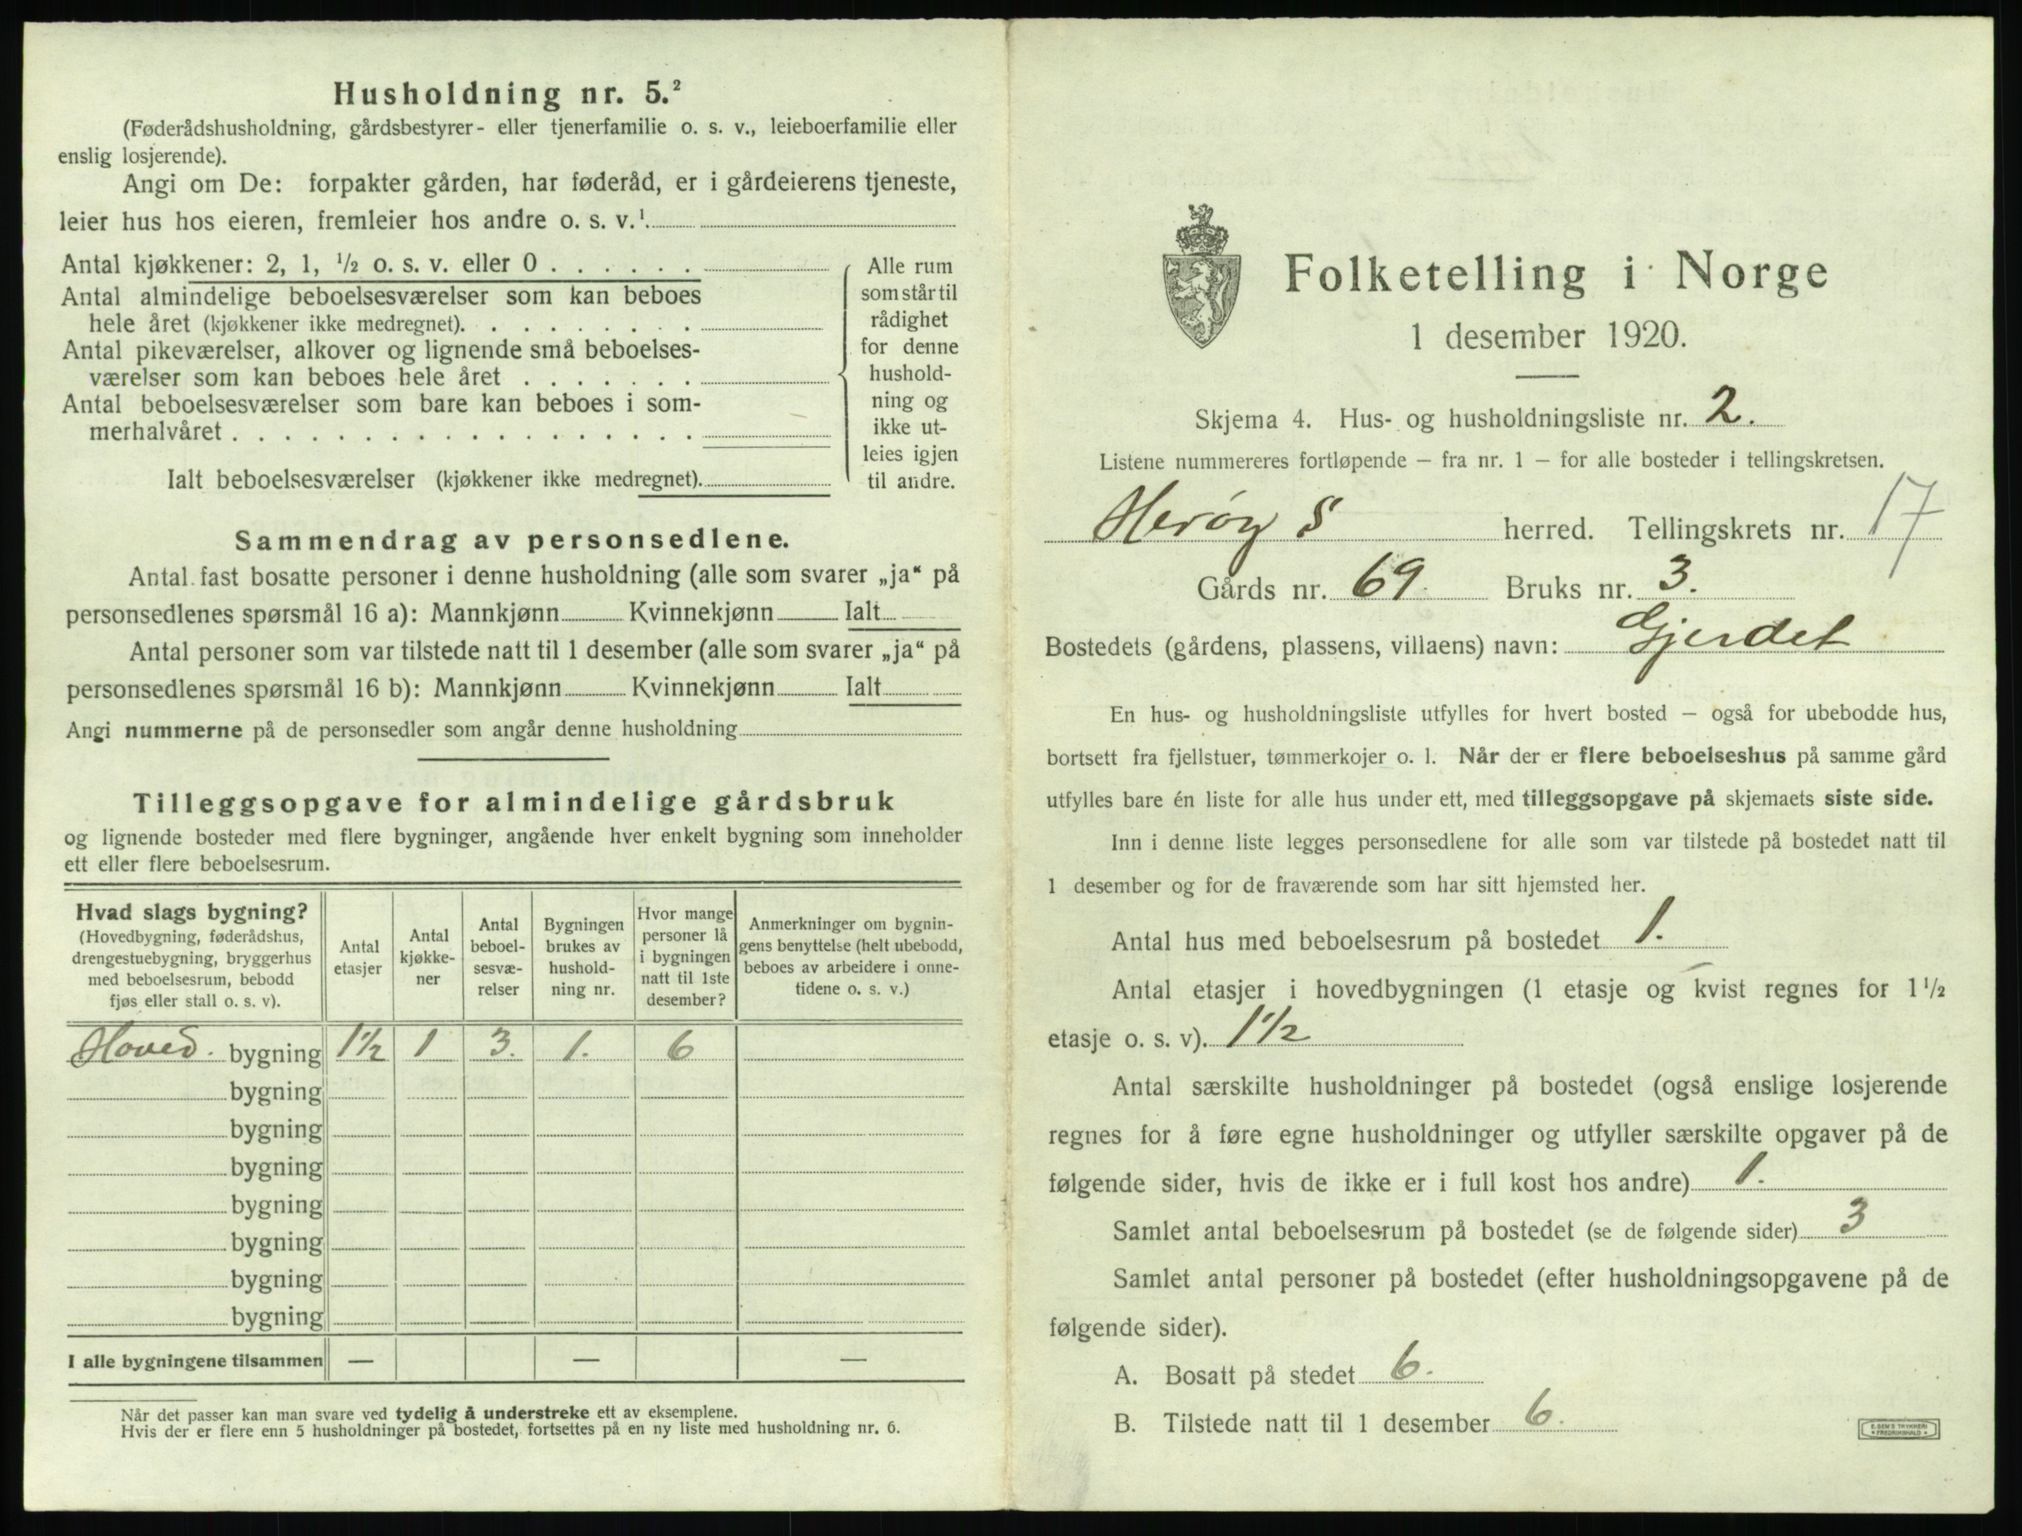 Husholdning nr. 5.²
(Føderådshusholdning, gårdsbestyrer- eller tjenerfamilie o. s. v., leieboerfamilie eller
enslig losjerende).
Angi om De: forpakter gården, har føderåd, er i gårdeierens tjeneste,
leier hus hos eieren, fremleier hos andre o. s. v.¹
Antal kjøkkener: 2, 1, ½ o. s. v. eller 0
Antal almindelige beboelsesværelser som kan beboes
hele året (kjøkkener ikke medregnet).
Antal pikeværelser, alkover og lignende små beboelses-
værelser som kan beboes hele året
Antal beboelsesværelser som bare kan beboes i som-
merhalvåret
Ialt beboelsesværelser (kjøkkener ikke medregnet).
Alle rum
som står til
rådighet
for denne
hushold-
ning og
ikke ut-
leies igjen
til andre.
Sammendrag av personsedlene.
Antal fast bosatte personer i denne husholdning (alle som svarer „ja“ på
personsedlenes spørsmål 16 a): Mannkjønn Kvinnekjønn Ialt
Antal personer som var tilstede natt til 1 desember (alle som svarer „ja“ på
personsedlenes spørsmål 16 b): Mannkjønn Kvinnekjønn Ialt
Angi nummerne på de personsedler som angår denne husholdning
Tilleggsopgave for almindelige gårdsbruk
og lignende bosteder med flere bygninger, angående hver enkelt bygning som inneholder
ett eller flere beboelsesrum.
Hvad slags bygning?
(Hovedbygning, føderådshus,
drengestuebygning, bryggerhus
med beboelsesrum, bebodd
fjøs eller stall o. s. v).
Antal
etasjer
Antal
kjøkke-
ner
Antal
beboel-
sesvæ-
relser
Bygningen
brukes av
hushold-
ning nr.
Hvor mange
personer lå
i bygningen
natt til 1ste
desember?
Anmerkninger om bygnin-
gens benyttelse (helt ubebodd,
beboes av arbeidere i onne-
tidene o. s. v.)
Hoved. bygning 1½ 1 3. 1. 6
bygning
bygning
bygning
bygning
bygning
bygning
bygning
I alle bygningene tilsammen — — —
Når det passer kan man svare ved tydelig å understreke ett av eksemplene.
Hvis der er flere enn 5 husholdninger på bostedet, fortsettes på en ny liste med husholdning nr. 6.
Folketelling i Norge
1 desember 1920.
Skjema 4. Hus- og husholdningsliste nr. 2.
Listene nummereres fortløpende – fra nr. 1 – for alle bosteder i tellingskretsen.
Herøy S herred. Tellingskrets nr. 17
Gårds nr. 69. Bruks nr. 3.
Bostedets (gårdens, plassens, villaens) navn: Gjerdet
En hus- og husholdningsliste utfylles for hvert bosted – også for ubebodde hus,
bortsett fra fjellstuer, tømmerkojer o. l. Når der er flere beboelseshus på samme gård
utfylles bare én liste for alle hus under ett, med tilleggsopgave på skjemaets siste side.
Inn i denne liste legges personsedlene for alle som var tilstede på bostedet natt til
1 desember og for de fraværende som har sitt hjemsted her.
Antal hus med beboelsesrum på bostedet 1.
Antal etasjer i hovedbygningen (1 etasje og kvist regnes for 1½
etasje o. s. v). 1½
Antal særskilte husholdninger på bostedet (også enslige losjerende
regnes for å føre egne husholdninger og utfyller særskilte opgaver på de
følgende sider, hvis de ikke er i full kost hos andre) 1.
Samlet antal beboelsesrum på bostedet (se de følgende sider) 3
Samlet antal personer på bostedet (efter husholdningsopgavene på de
følgende sider).
A. Bosatt på stedet 6.
B. Tilstede natt til 1 desember 6.
E. SEM'S TRYKKERI
• FREDRIKSHALD •